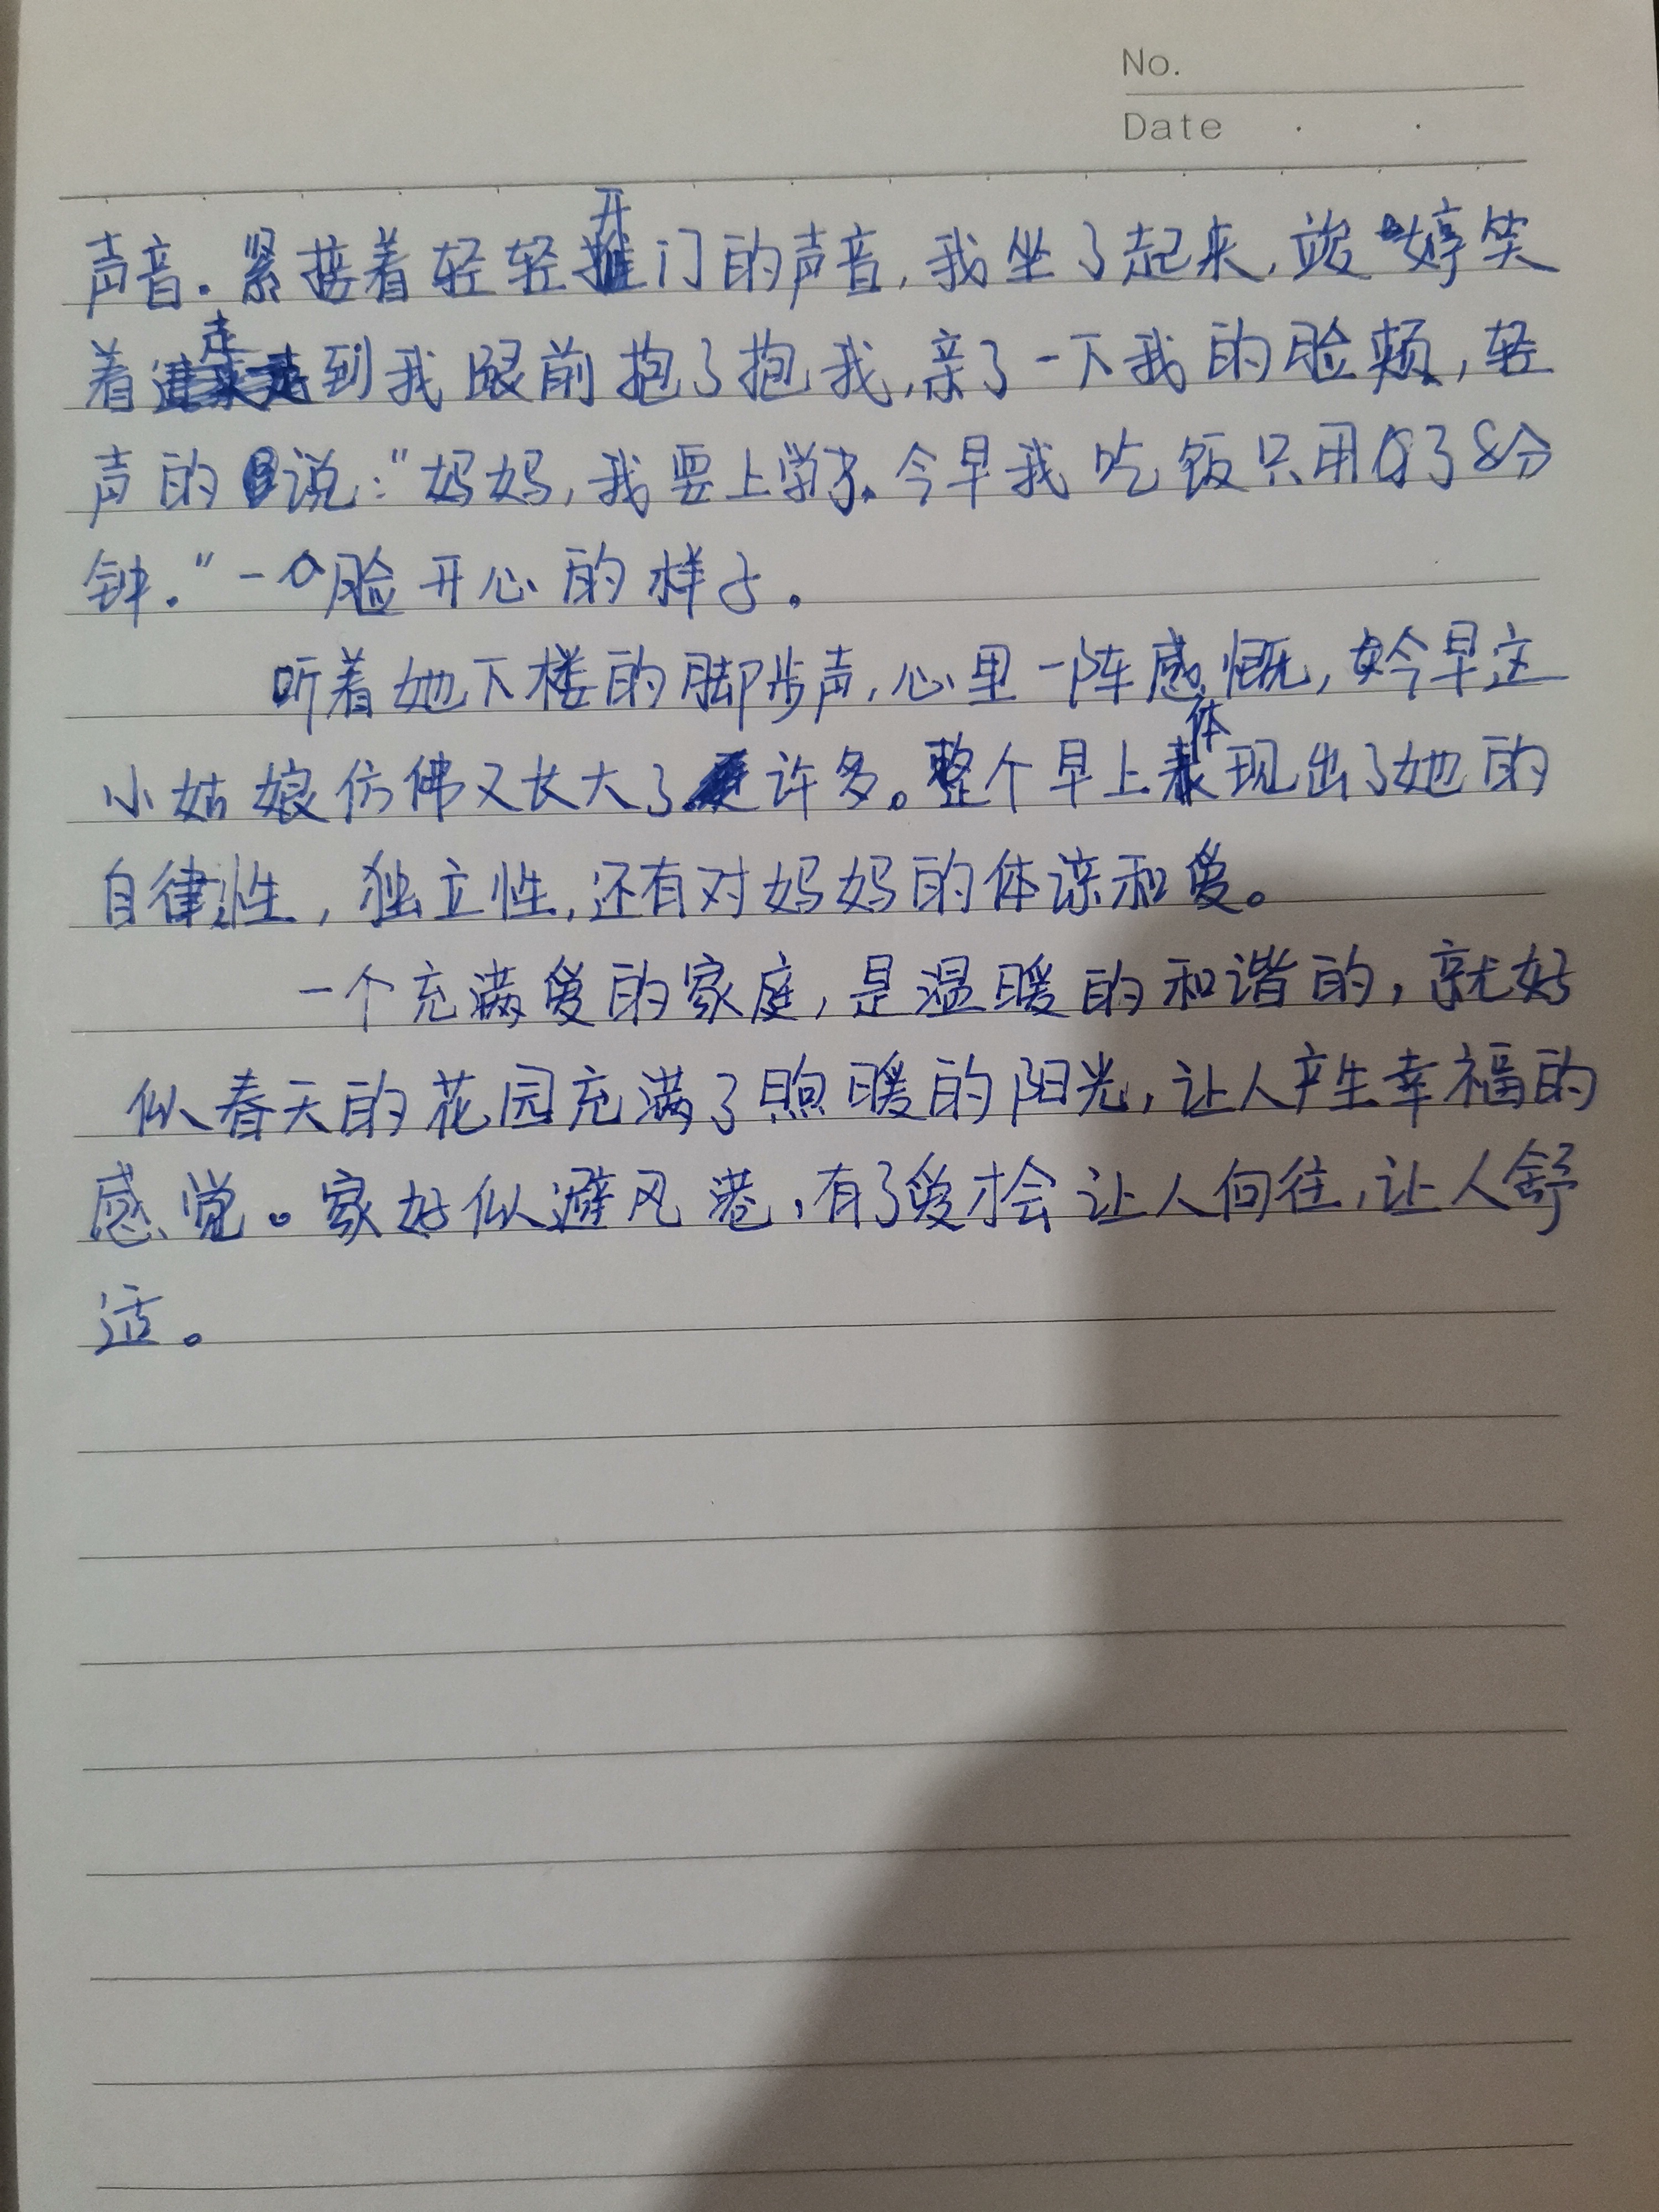 No.
Date
声音.紧接着轻轻开门的声音,我坐了起来,竣婷笑
着走到我眼前抱了抱我,亲了一下我的脸颊,轻
声的说:"妈妈,我要上学了.今早我吃饭只用了8分
钟."一脸开心的样子。
听着她下楼的脚步声,心里一阵感慨,今早这
小姑娘仿佛又长大了许多。整个早上体现出了她的
自律性,独立性,还有对妈妈的体谅和爱。
一个充满爱的家庭,是温暖的和谐的,就好
似春天的花园充满了煦暖的阳光,让人产生幸福的
感觉。家好似避风港,有了爱才会让人向往,让人舒
适。